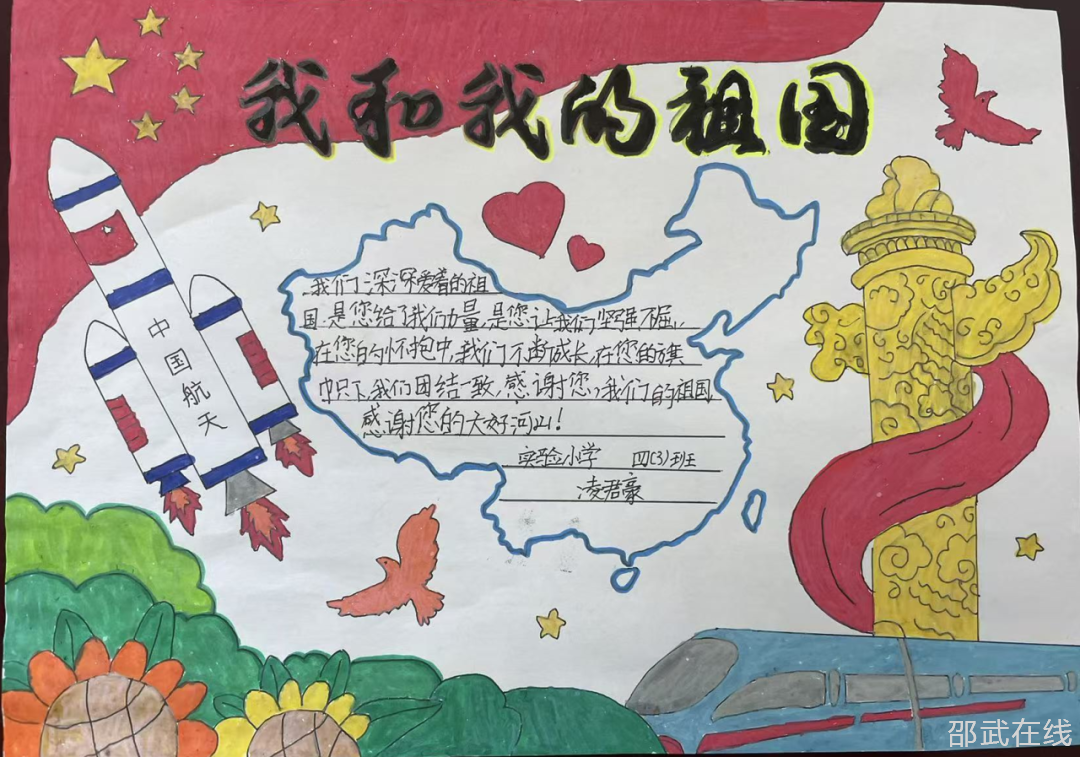 我和我的祖国
中国航天
我们深深爱着的祖
国,是您给了我们力量,是您让我们坚强不屈,
在您的怀抱中,我们不断成长,在您的旗
帜下,我们团结一致,感谢您,我们的祖国,
感谢您的大好河山!
实验小学 四(3)班
凌君豪
邵武在线